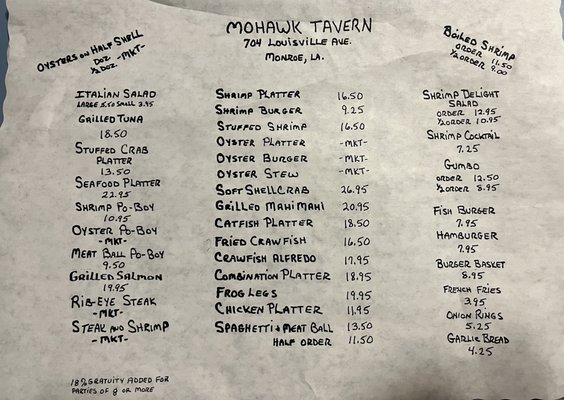 MOHAWK TAVERN
704 LOUISVILLE AVE.
MONROE, LA.
OYSTERS ON HALF SHELL
DOZ. -MKT-
½ DOZ.
ITALIAN SALAD
LARGE 5.50 SMALL 3.95
GRILLED TUNA
18.50
STUFFED CRAB
PLATTER
13.50
SEAFOOD PLATTER
22.95
SHRIMP PO-BOY
10.95
OYSTER PO-BOY
-MKT-
MEAT BALL PO-BOY
9.50
GRILLED SALMON
19.95
RIB-EYE STEAK
-MKT-
STEAK AND SHRIMP
-MKT-
18% GRATUITY ADDED FOR
PARTIES OF 8 OR MORE
SHRIMP PLATTER 16.50
SHRIMP BURGER 9.25
STUFFED SHRIMP 16.50
OYSTER PLATTER -MKT-
OYSTER BURGER -MKT-
OYSTER STEW -MKT-
SOFT SHELL CRAB 26.95
GRILLED MAHI MAHI 20.95
CATFISH PLATTER 18.50
FRIED CRAWFISH 16.50
CRAWFISH ALFREDO 17.95
COMBINATION PLATTER 18.95
FROG LEGS 19.95
CHICKEN PLATTER 11.95
SPAGHETTI + MEAT BALL 13.50
HALF ORDER 11.50
BOILED SHRIMP
ORDER 11.50
½ ORDER 9.00
SHRIMP DELIGHT
SALAD
ORDER 12.95
½ ORDER 10.95
SHRIMP COCKTAIL
7.25
GUMBO
ORDER 12.50
½ ORDER 8.95
FISH BURGER
7.95
HAMBURGER
7.95
BURGER BASKET
8.95
FRENCH FRIES
3.95
ONION RINGS
5.25
GARLIC BREAD
4.25